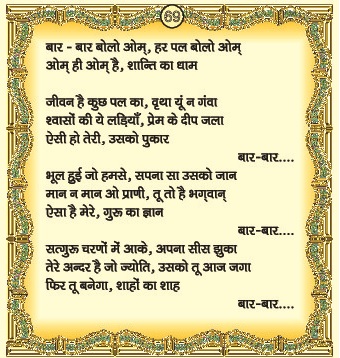 69
बार - बार बोलो ओम्, हर पल बोलो ओम्
ओम् ही ओम् है, शान्ति का धाम
जीवन है कुछ पल का, वृथा यूं न गंवा
श्वासों की ये लड़ियाँ, प्रेम के दीप जला
ऐसी हो तेरी, उसको पुकार
बार-बार....
भूल हुई जो हमसे, सपना सा उसको जान
मान न मान ओ प्राणी, तू तो है भगवान्
ऐसा है मेरे, गुरू का ज्ञान
बार-बार....
सत्गुरू चरणों में आके, अपना सीस झुका
तेरे अन्दर है जो ज्योति, उसको तू आज जगा
फिर तू बनेगा, शाहों का शाह
बार-बार....